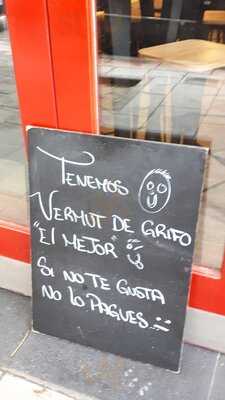 TENEMOS
VERMUT DE GRIFO
"El MEJOR"
SI NO TE GUSTA
NO LO PAGUES...